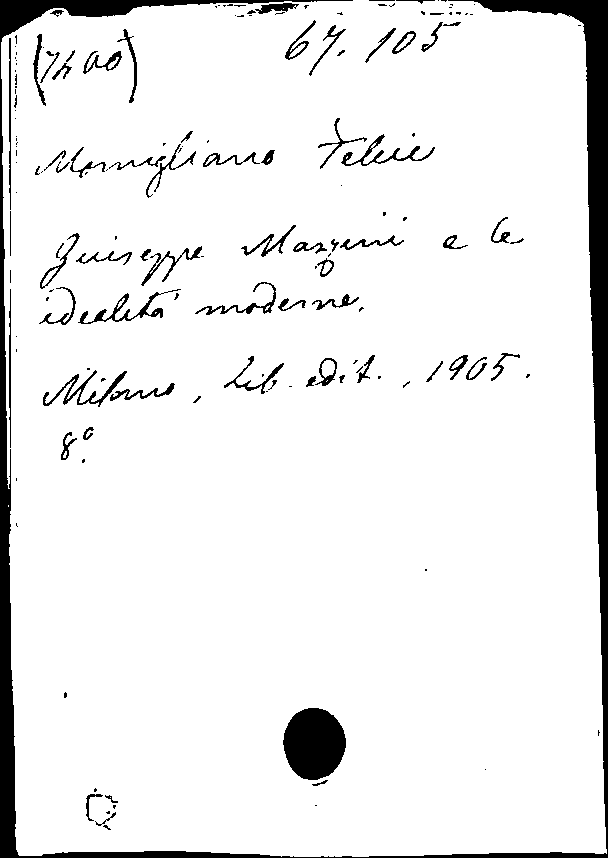 (7400) 67.105
Momigliano Felice
Giuseppe Mazzini e le
idealità moderne.
Milano, Lib. edit., 1905.
8º.